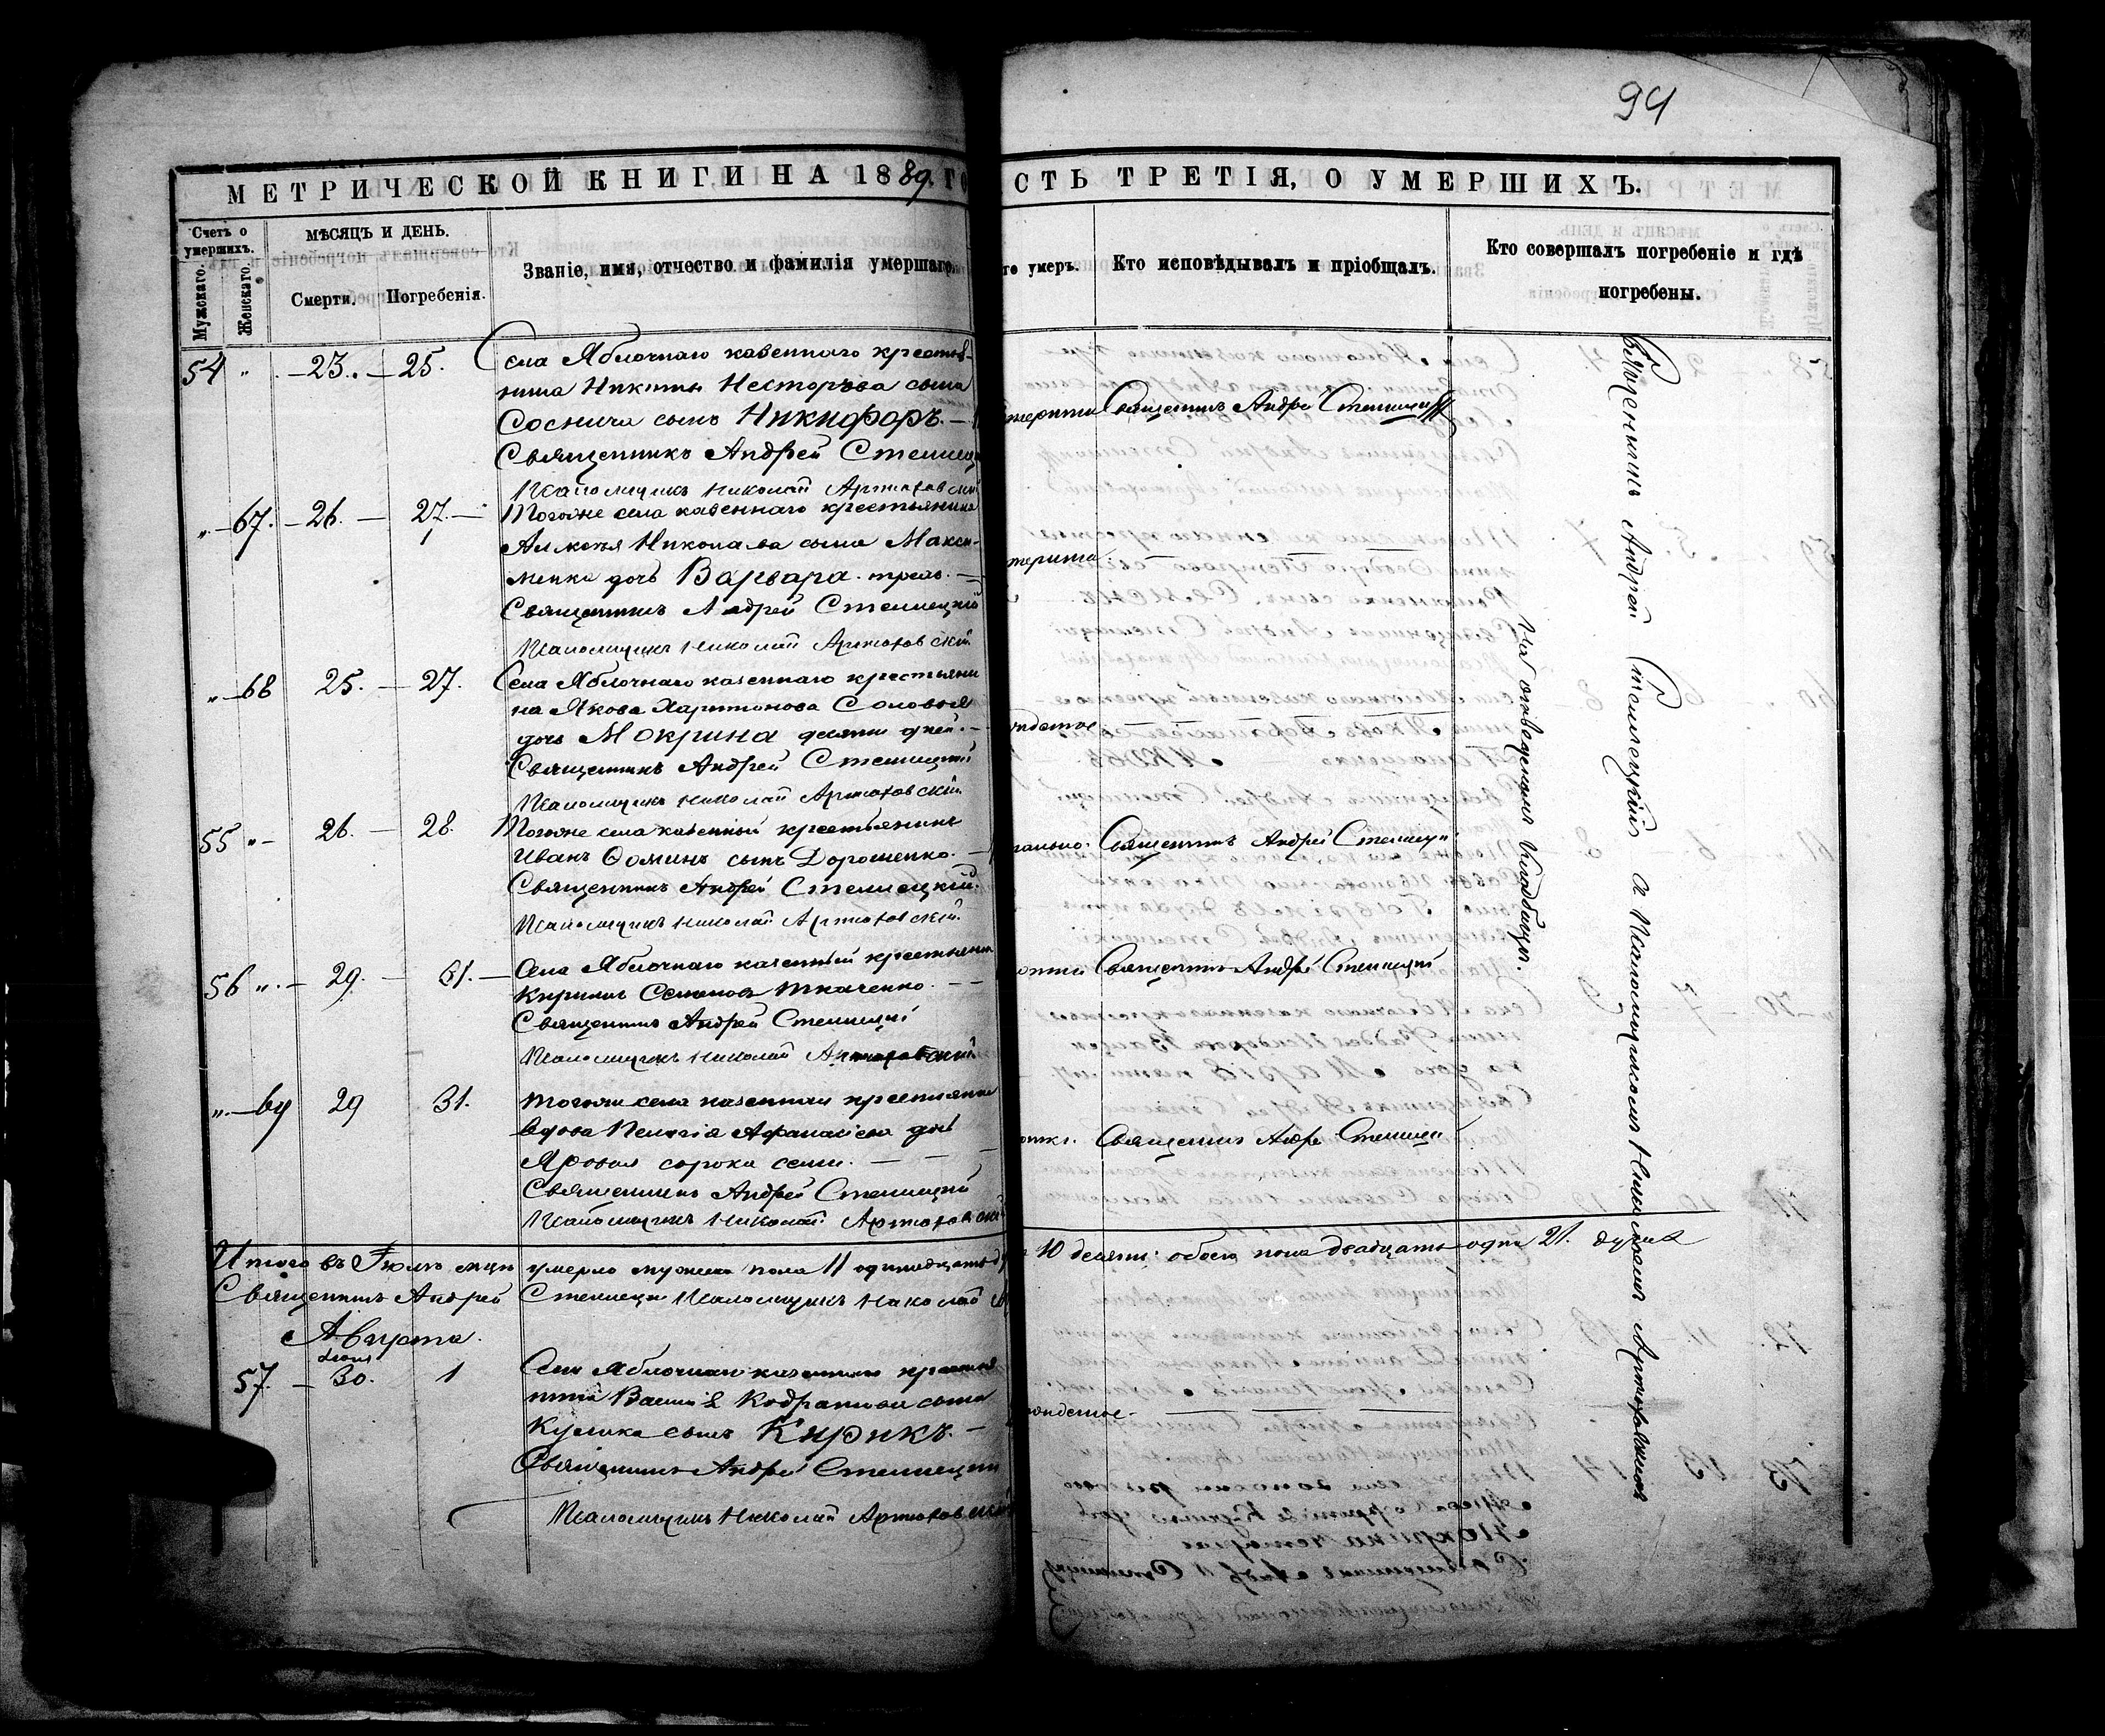 94
МЕТРИЧЕСКОЙ КНИГИ НА 1889 ГО
СТЬ ТРЕТІЯ, О УМЕРШИХЪ.
Счетъ о умершихъ.
Мужскаго.
Женскаго.
МѢСЯЦЪ И ДЕНЬ.
Смерти.
Погребенія.
Званіе, имя, отчество и фамилія умершаго.
го умеръ.
Кто исповѣдывалъ и пріобщалъ.
Кто совершалъ погребеніе и гдѣ
погребены.
54 " 23. 25. Села Яблочнаго казеннаго крестья-
нина Никиты Несторова сына
Соснича сынъ Никифоръ.
Священникъ Андрей Стеллецк
Псаломщикъ Николай Артюховскій
Священникъ Андрей Стеллецкій
" 67. 26. 27. Тогоже села казеннаго крестьянина
Алексѣя Николаева сына Макси-
менка дочь Варвара
Священникъ Андрей Стеллецкій
Псаломщикъ Николай Артюховскій
" 68 25. 27. Села Яблочнаго казеннаго крестьяни
на Якова Харитонова Соловья
дочь Мокрина десяти дней.
Священникъ Андрей Стеллецкій
Псаломщикъ Николай Артюховскій
55 " 26. 28. Тогоже села казенный крестьянинъ
Иванъ Ѳоминъ сынъ Дорошенко.
Священникъ Андрей Стеллецкій.
Псаломщикъ Николай Артюховскій
Священникъ Андрей Стеллецкій
56 " 29. 31. Села Яблочнаго казенный крестьянин
Кириллъ Семеновъ Ткаченко.
Священникъ Андрей Стеллецкій
Псаломщикъ Николай Артюховскій
Священникъ Андрей Стеллецкій
" 69 29 31. Тогоже села казенная крестьянка
вдова Пелагія Афанасіева дочь
Яровая сорока семи.
Священникъ Андрей Стеллецкій
Псаломщикъ Николай Артюховскій
Священникъ Андрей Стеллецкій
Священникъ Андрей Стеллецкій и Псаломщикомъ Николаемъ Артюховскимъ
на отведенномъ кладбищѣ.
Итого въ Іюлѣ умерло мужска пола 11 одинадцать
10 десять: обоего пола двадцать одна 21. душа
Священникъ Андрей Стеллецкій Псаломщикъ Николай
Августа.
Іюля
57. 30. 1 Села Яблочнаго казеннаго крестья
нина Кодратова сына
Кулика сынъ Кирикъ.
Священникъ Андрей Стеллецкій
Псаломщикъ Николай Артюховскій